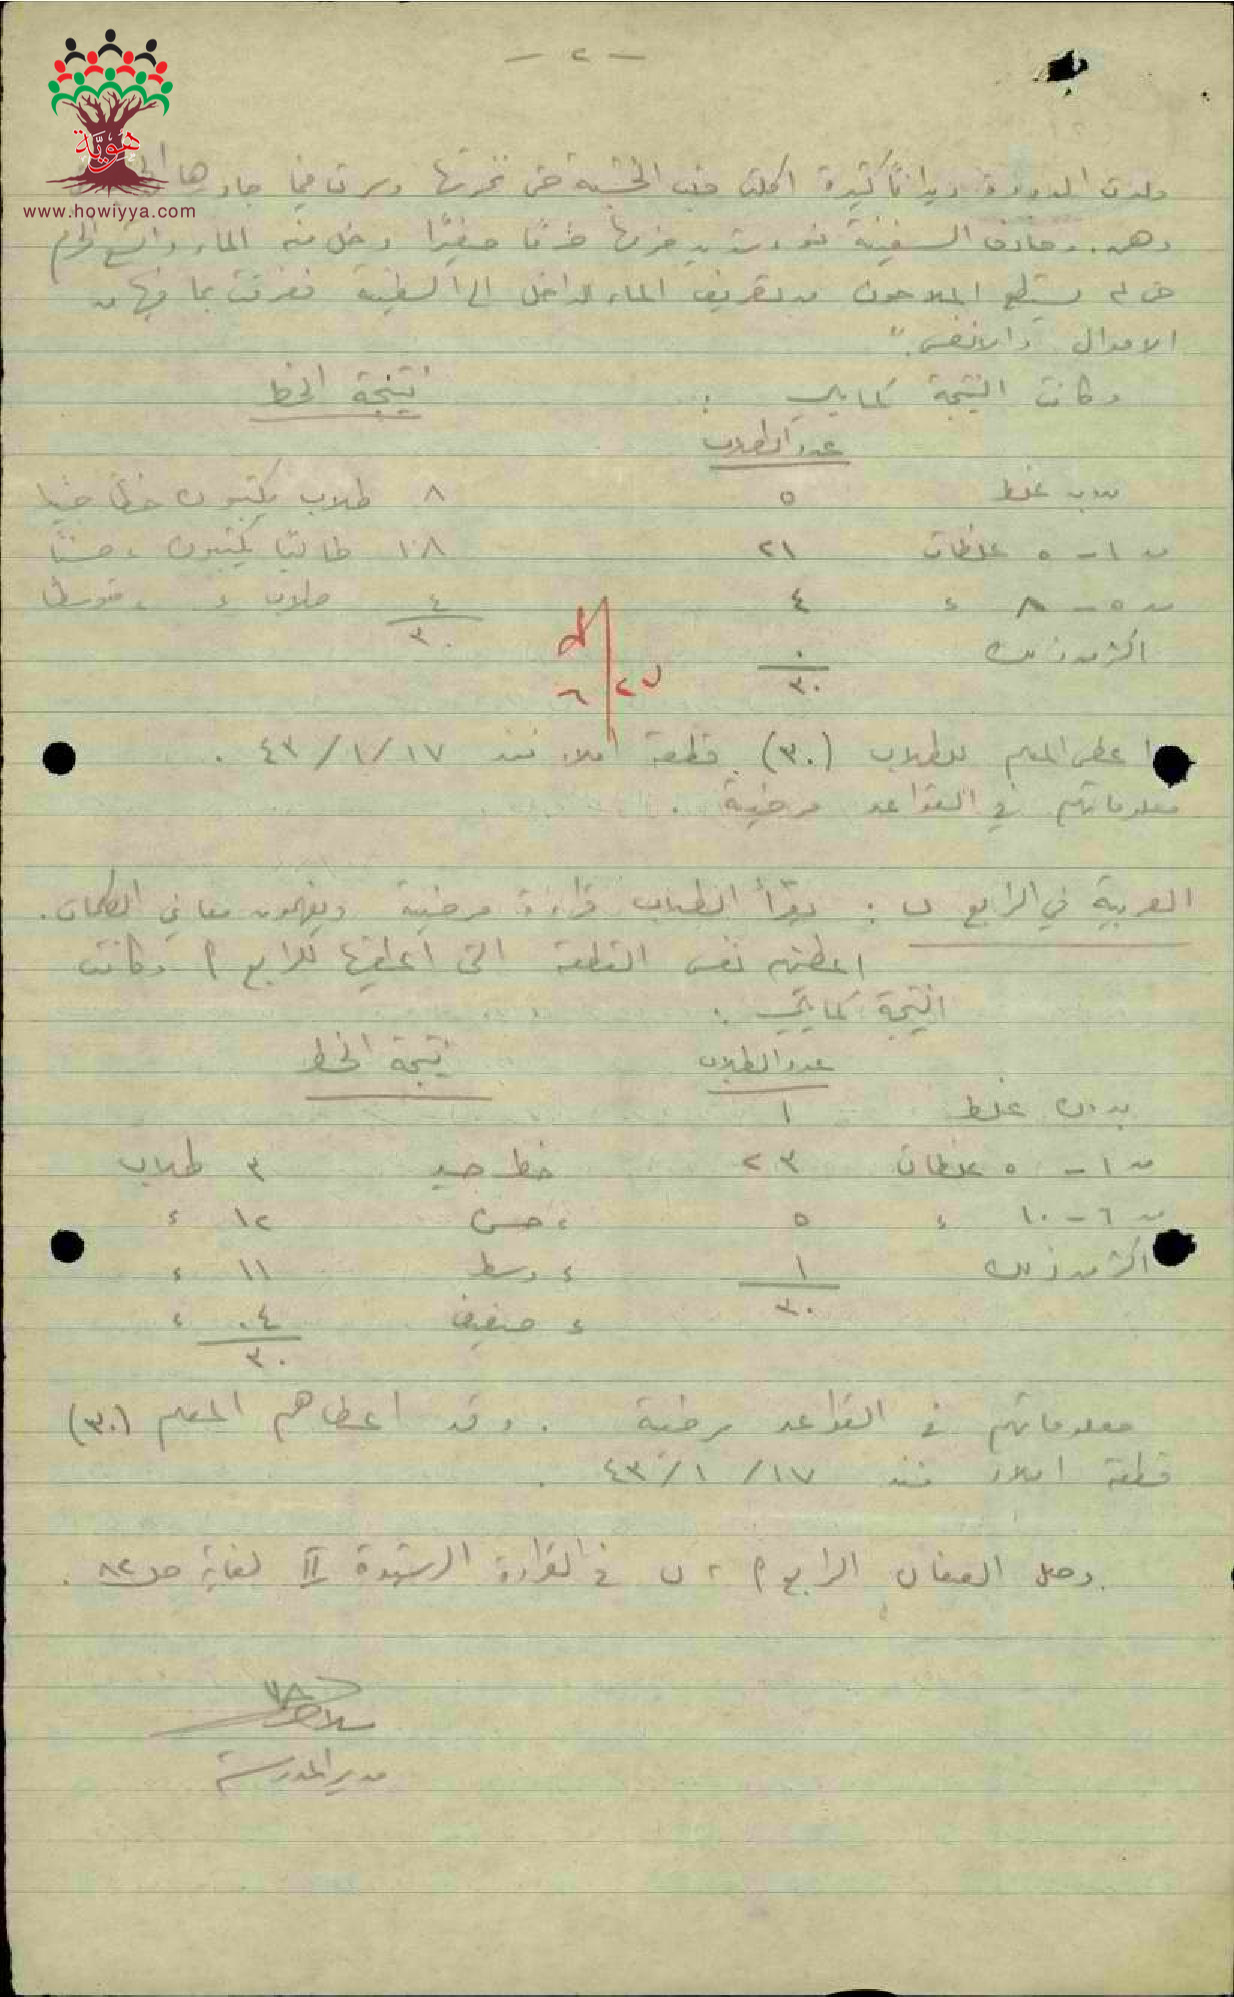 - ٢ -
هوية
www.howiyya.com
ولدت الدودة ديدانًا كثيرة اكلت قلب الخشبة حتى نخرتها وسرت فيما جاورها
وهن. وصادف السفينة نوء شديد خرقها خرقًا صغيرًا دخل منه الماء واتسع الخرم
حتى لم يستطع الملاحون من تفريغ الماء الداخل الى السفينة فغرقت بما فيها من
الاموال والانفس."
وكانت النتيجة كما يلي : نتيجة الخط
عدد الطلاب
بدون غلط ٥ ٨ طلاب يكتبون خطًا جيدًا
من ١ - ٥ غلطات ٢١ ١٨ طالبًا يكتبون ، حسنًا
من ٥ - ٨ ، ٤ ٤ طلاب ، ، متوسطًا
اكثر من ذلك ٠ ٣٠
٣٠
اعطى المعلم للطلاب (٣٠) قطعة املاء منذ ٤٣/١/١٧ .
معلوماتهم في القواعد مرضية .
العربية في الرابع ب : يقرأ الطلاب قراءة مرضية ويفهمون معاني الكلمات.
اعطيتهم نفس القطعة التي اعطيتها للرابع أ وكانت
النتيجة كما يلي :
عدد الطلاب نتيجة الخط
بدون غلط ١
من ١ - ٥ غلطات ٢٣ خط جيد ٣ طلاب
من ٦ - ١٠ ، ٥ ، حسن ١٢ ،
اكثر من ذلك ١ ، وسط ١١ ،
٣٠ ، ضعيف ٠٤ ،
٣٠
معلوماتهم في القواعد مرضية . وقد اعطاهم المعلم (٣٠)
قطعة املاء منذ ٤٣/١/١٧ .
وصل الصفان الرابع أ ، ب في القراءة الرشيدة II لغاية ص ٨٢ .
مدير المدرسة